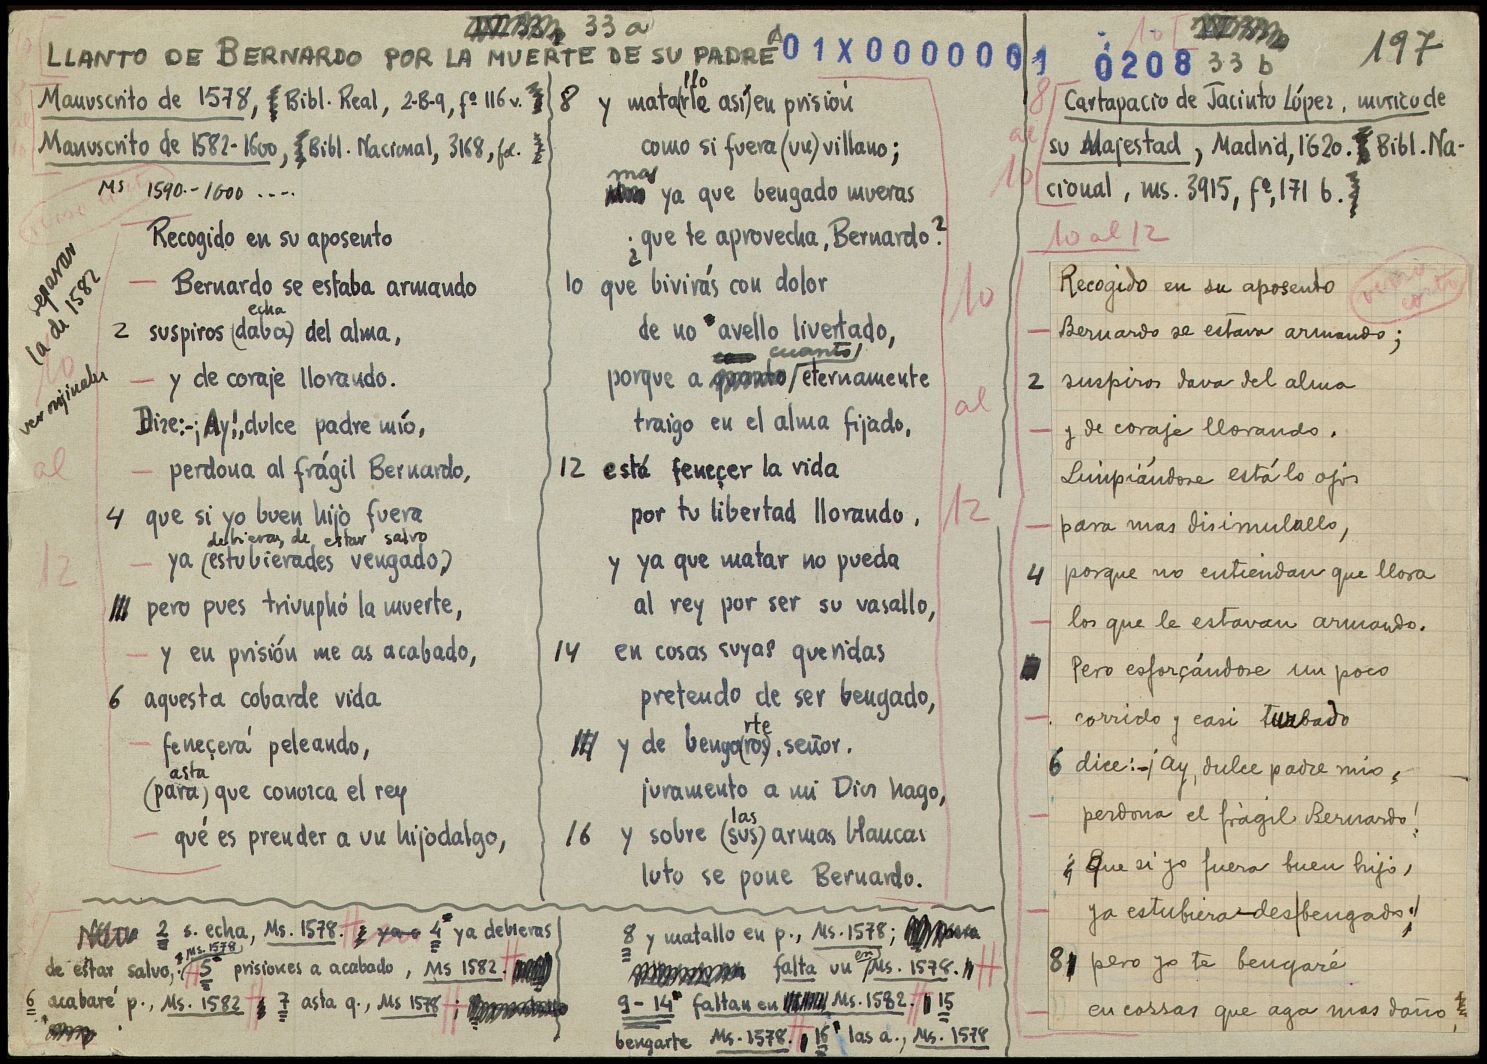 33 a
LLANTO DE BERNARDO POR LA MUERTE DE SU PADRE
01X0000001
0208
33 b
197
Manuscrito de 1578, Bibl. Real, 2-B-9, fº 116 v.
Manuscrito de 1582-1600, Bibl. Nacional, 3168, fol.
Ms 1590-1600 ....
separar
la de 1582
ver originales
10
al
12
Recogido en su aposento
— Bernardo se estaba armando
echa
2 suspiros (daba) del alma,
— y de coraje llorando.
Dize:-¡Ay!, dulce padre mío,
— perdona al frágil Bernardo,
4 que si yo buen hijo fuera
debieras de estar salvo
— ya (estubierades vengado,)
pero pues triunphó la muerte,
— y en prisión me as acabado,
6 aquesta cobarde vida
— feneçerá peleando,
asta
(para) que conozca el rey
— qué es prender a un hijodalgo,
llo
8 y mata(rle así) en prisión
como si fuera (un) villano;
mas
ya que bengado mueras
¿que te aprovecha, Bernardo?
10 que bivirás con dolor
de no avello livertado,
cuanto
porque a eternamente
traigo en el alma fijado,
12 está feneçer la vida
por tu libertad llorando,
y ya que matar no pueda
al rey por ser su vasallo,
14 en cosas suyas queridas
pretendo de ser bengado,
rte
y de benga(ros), señor.
juramento a mi Dios hago,
las
16 y sobre (sus) armas blancas
luto se pone Bernardo.
10
al
12
2 s. echa, Ms. 1578. 4 ya debieras
de estar salvo, Ms. 1578 5 prisiones a acabado, Ms 1582.
6 acabaré p., Ms. 1582 7 asta q., Ms 1578;
8 y matallo en p., Ms. 1578;
falta un en Ms. 1578.
9-14 faltan en Ms. 1582. 15
bengarte Ms. 1578. 16 las a., Ms. 1578
10
8
al
10
Cartapacio de Jacinto López, músico de
su Majestad, Madrid, 1620. Bibl. Na-
cional, ms. 3915, fº, 171 b.
10 al 12
Recogido en su aposento
— Bernardo se estava armando;
2 suspiros dava del alma
— y de coraje llorando.
Limpiándose está lo ojos
— para mas disimulallo,
4 porque no entiendan que llora
— los que le estavan armando.
Pero esforçándose un poco
— corrido y casi turbado
6 dice:-¡Ay, dulce padre mio,
— perdona el frágil Bernardo!
¡Que si yo fuera buen hijo,
— ya estubiera des bengado!
8 pero yo te bengaré
— en cossas que aga mas daño,